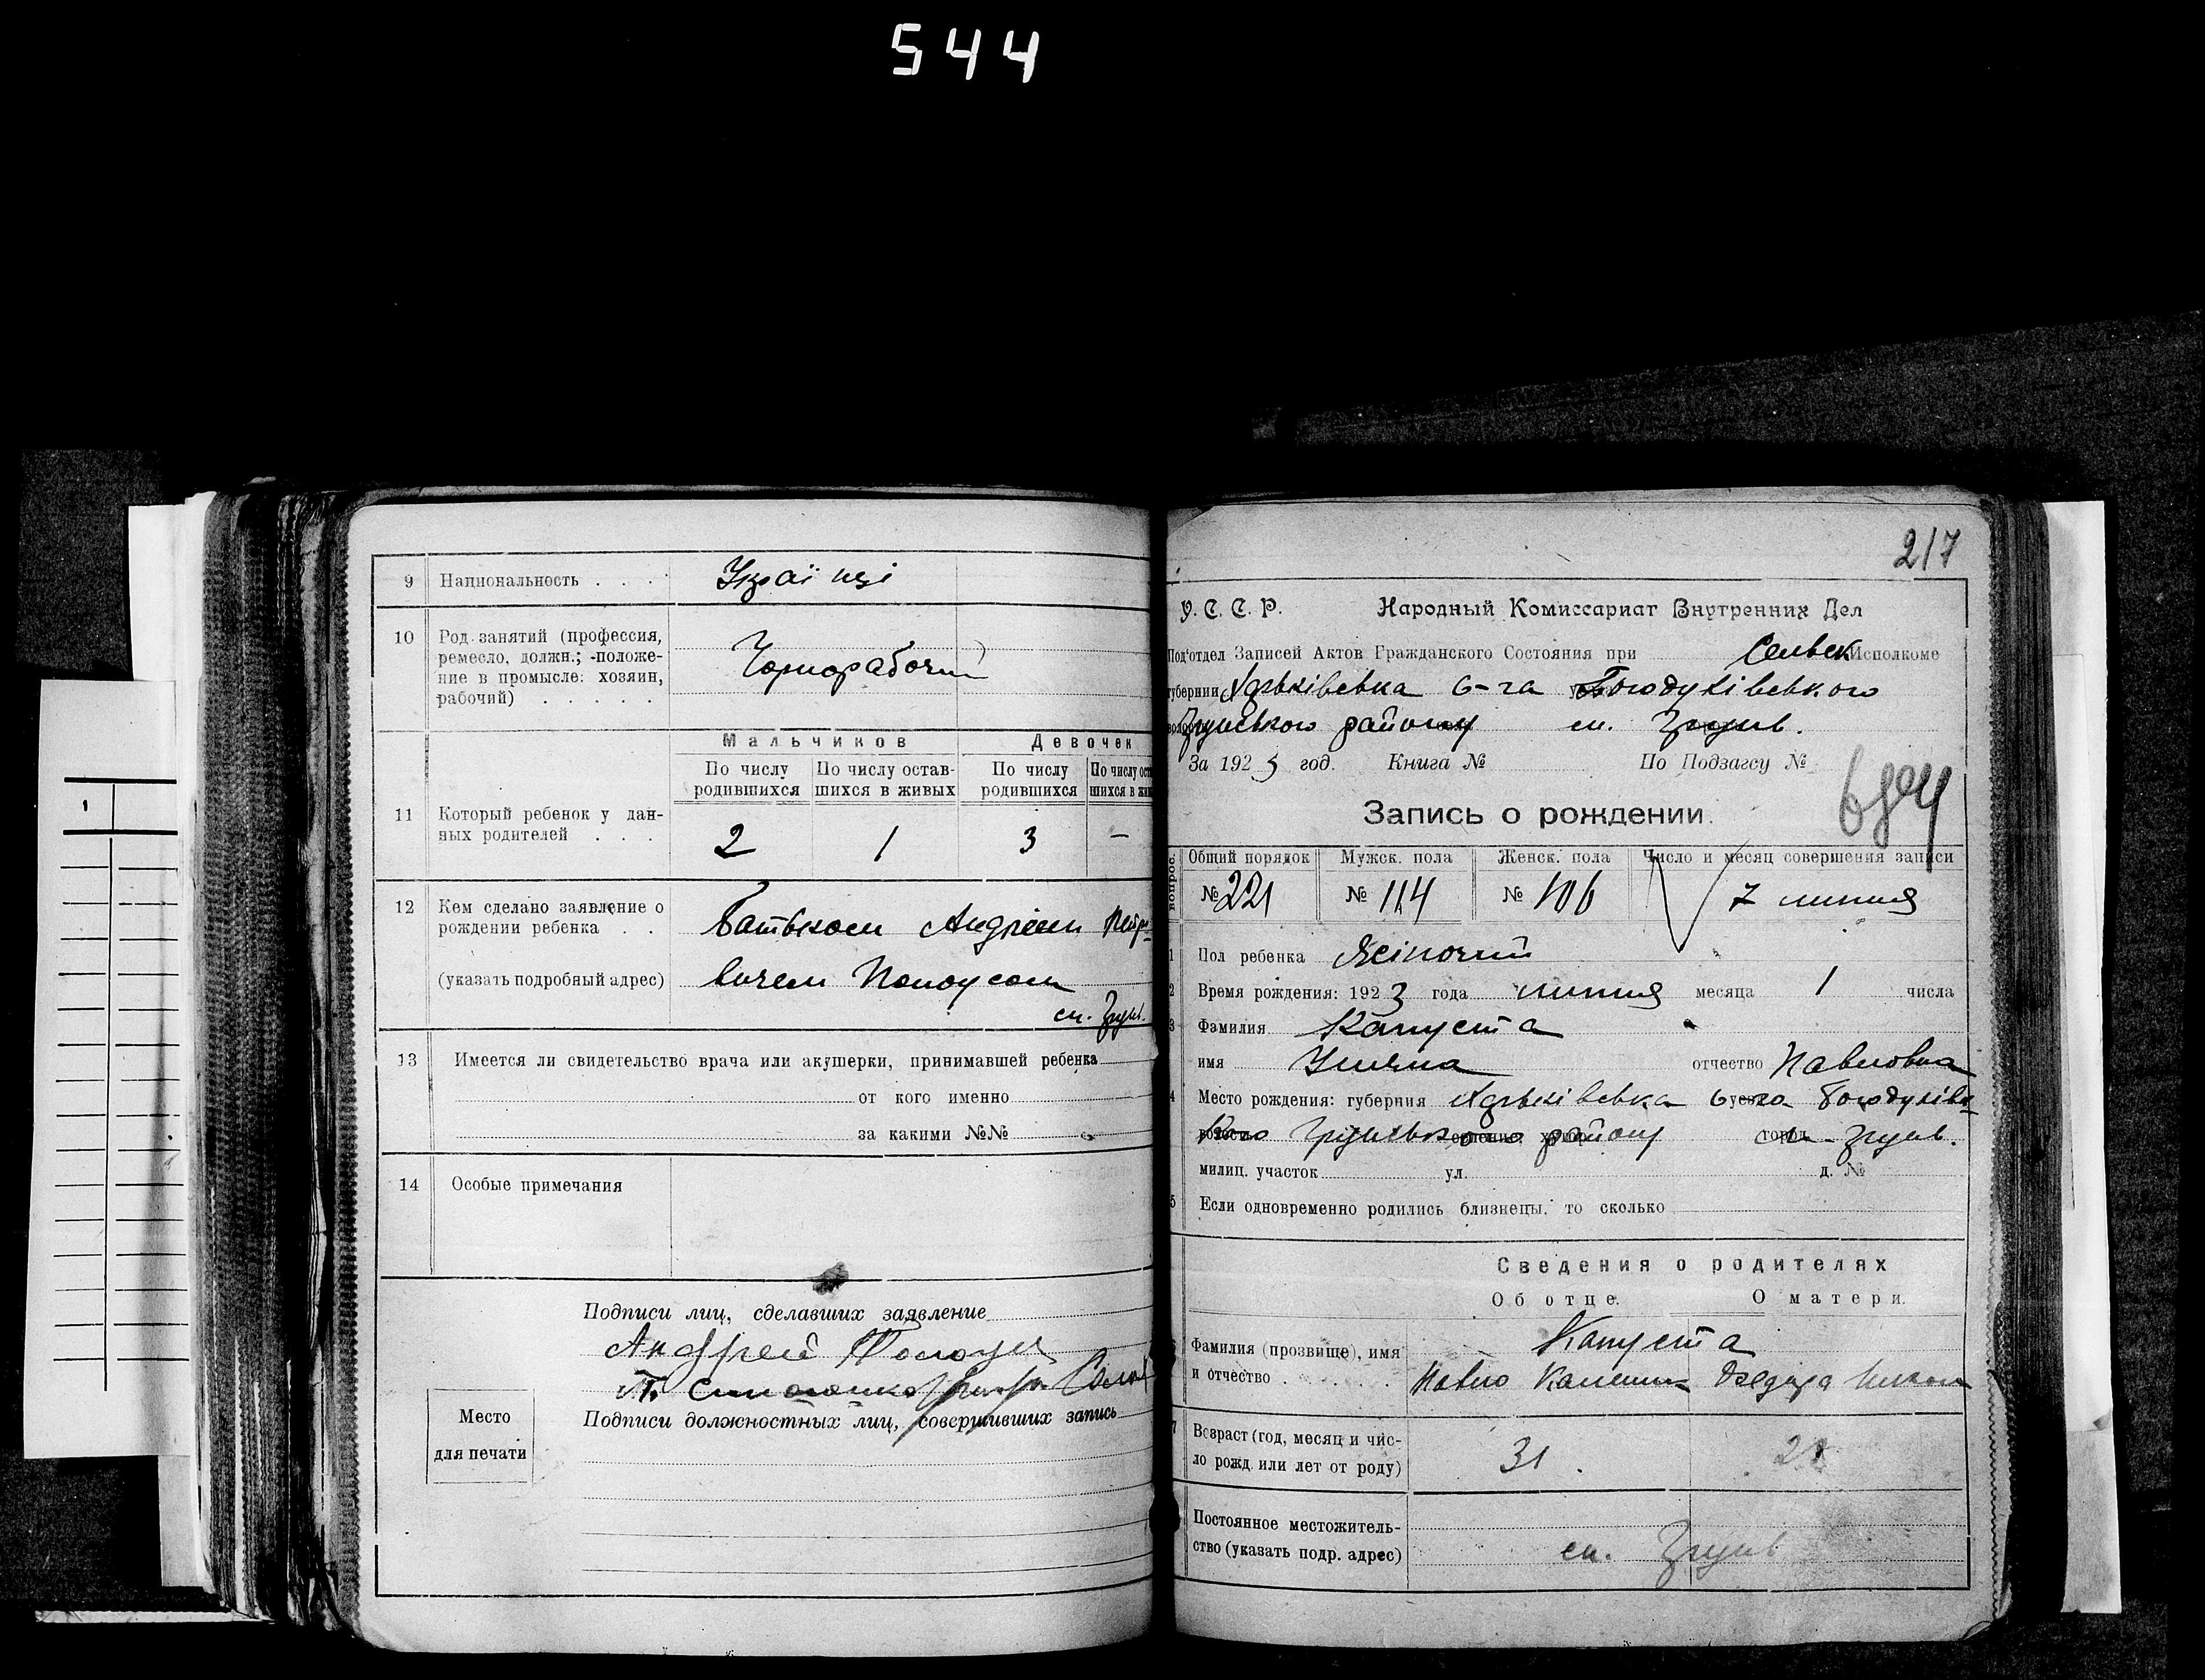 544
9 Национальность . . . Українці
10 Род занятий (профессия,
ремесло, должн.; положе-
ние в промысле: хозяин,
рабочий) . . . . .
Чорнорабочий
Мальчиков Девочек
По числу родившихся По числу остав-шихся в живых По числу родившихся По числу ост шихся в жи
11 Который ребенок у дан-
ных родителей . . .
2 1 3 —
12 Кем сделано заявление о
рождении ребенка . .
Батьком Андрієм Петро-
(указать подробный адрес) вичем
сл. Грунь.
13 Имеется ли свидетельство врача или акушерки, принимавшей ребенка
от кого именно
за какими №№
14 Особые примечания
Подписи лиц, сделавших заявление
Андрей
Подписи должностных лиц, совершивших запись
Место
для печати
217
У. С. С. Р. Народный Комиссариат Внутренних Дел
Под'отдел Записей Актов Гражданского Состояния при Сельвик Исполкоме
губернии Харьківська б-га Богодухівського
Грунського району сл. Грунь.
За 1923 год. Книга № По Подзагсу №
Запись о рождении.
вопрос. Общий порядок Мужск. пола Женск. пола Число и месяц совершения записи
№ 221 № 114 № 106 7 липня
1 Пол ребенка Жіночий
2 Время рождения: 1923 года липня месяца 1 числа
3 Фамилия Капуста
имя Уляна отчество Павловна
4 Место рождения: губерния Харьківська Богодухівс-
кого Грунського району сл. Грунь.
милиц. участок ул. д. №
5 Если одновременно родились близнецы, то сколько
Сведения о родителях
Об отце. О матери.
6 Фамилия (прозвище), имя
и отчество . . . . .
Капуста
Павло
7 Возраст (год, месяц и чис-
ло рожд. или лет от роду)
31. 28
Постоянное местожитель-
ство (указать подр. адрес)
сл. Грунь